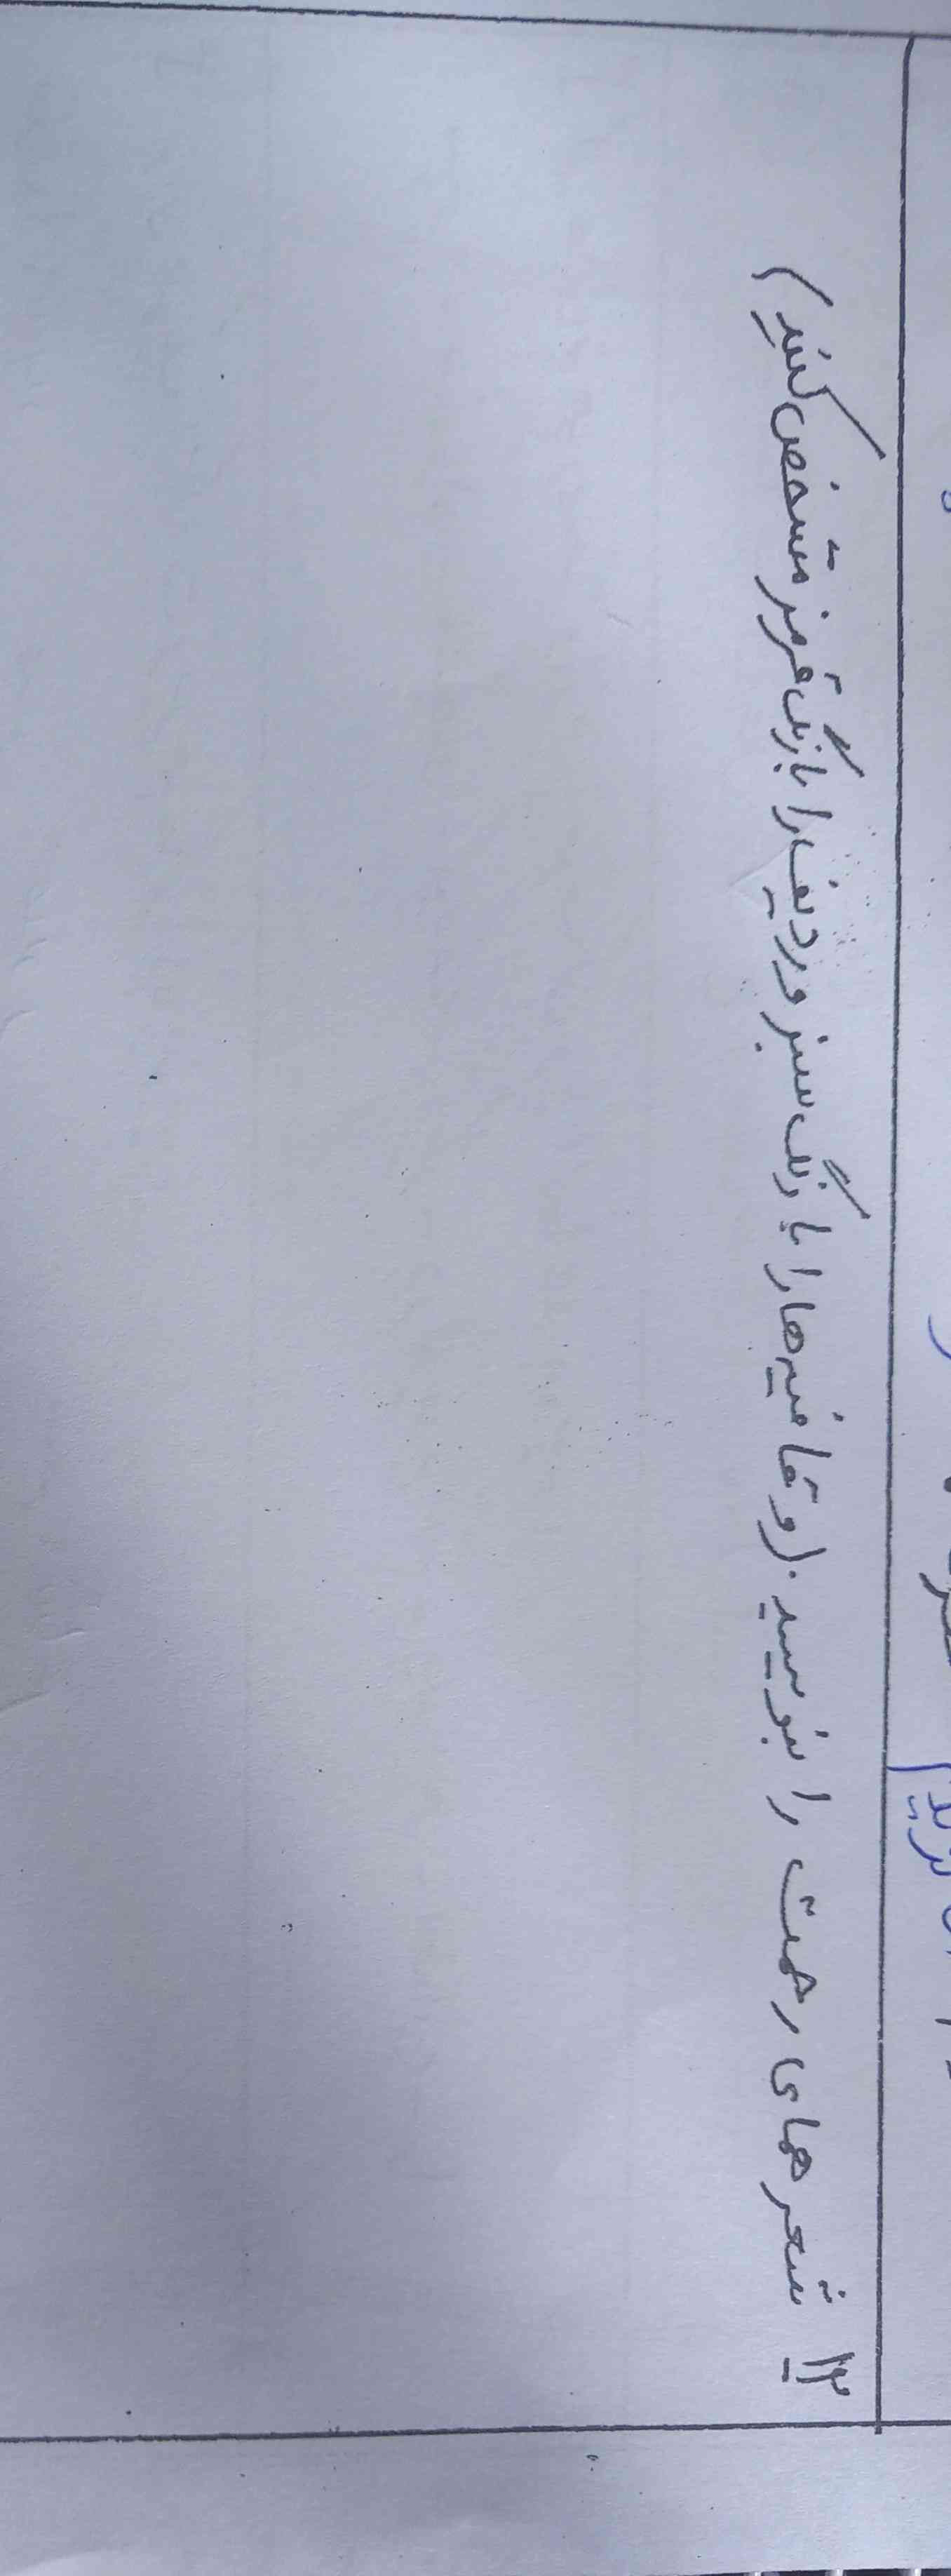 ۱۲ شعرهای رحمت را بنویسید. (و قافیه‌ها را با رنگ سبز و ردیف را با رنگ قرمز مشخص کنید)